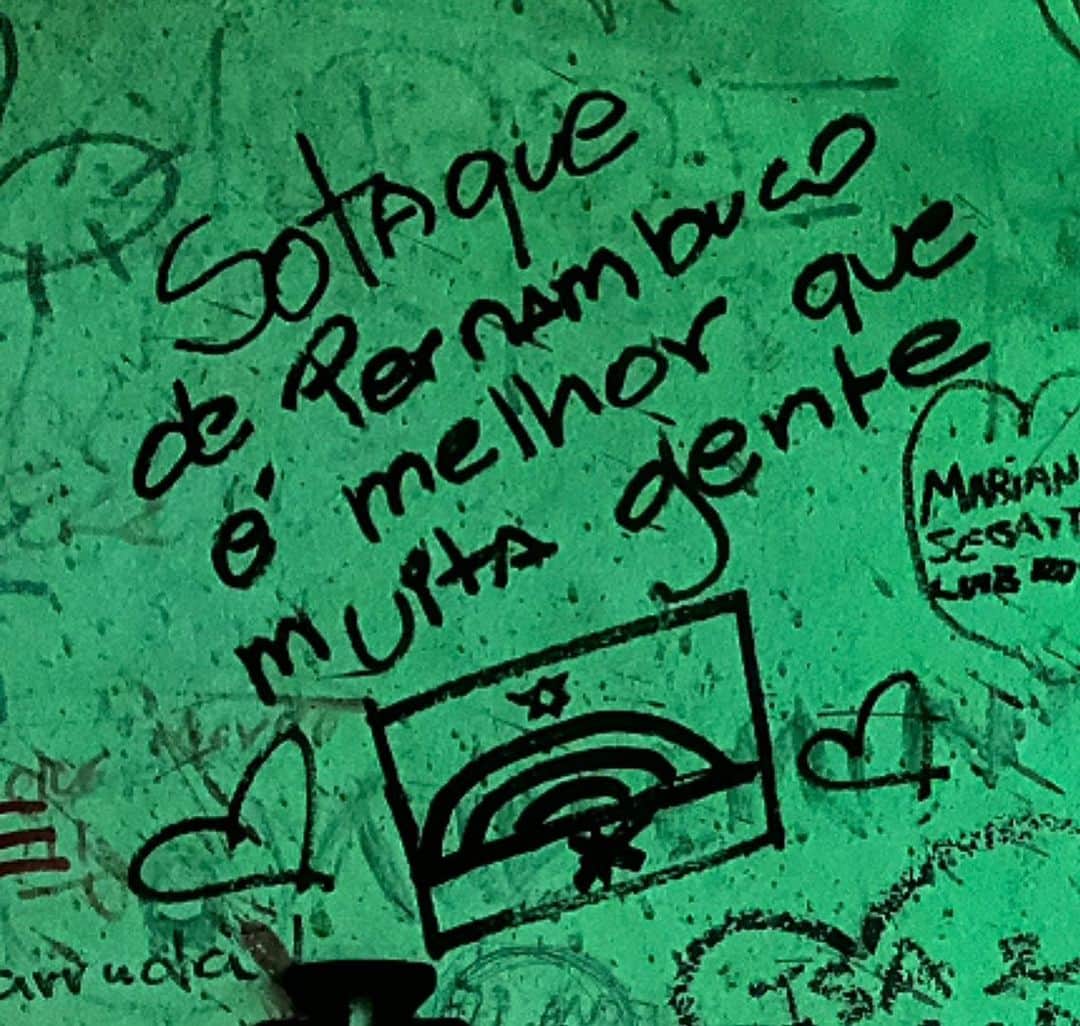 Sotaque
de Pernambuco
é melhor que
muita gente
MARIAN
arruda